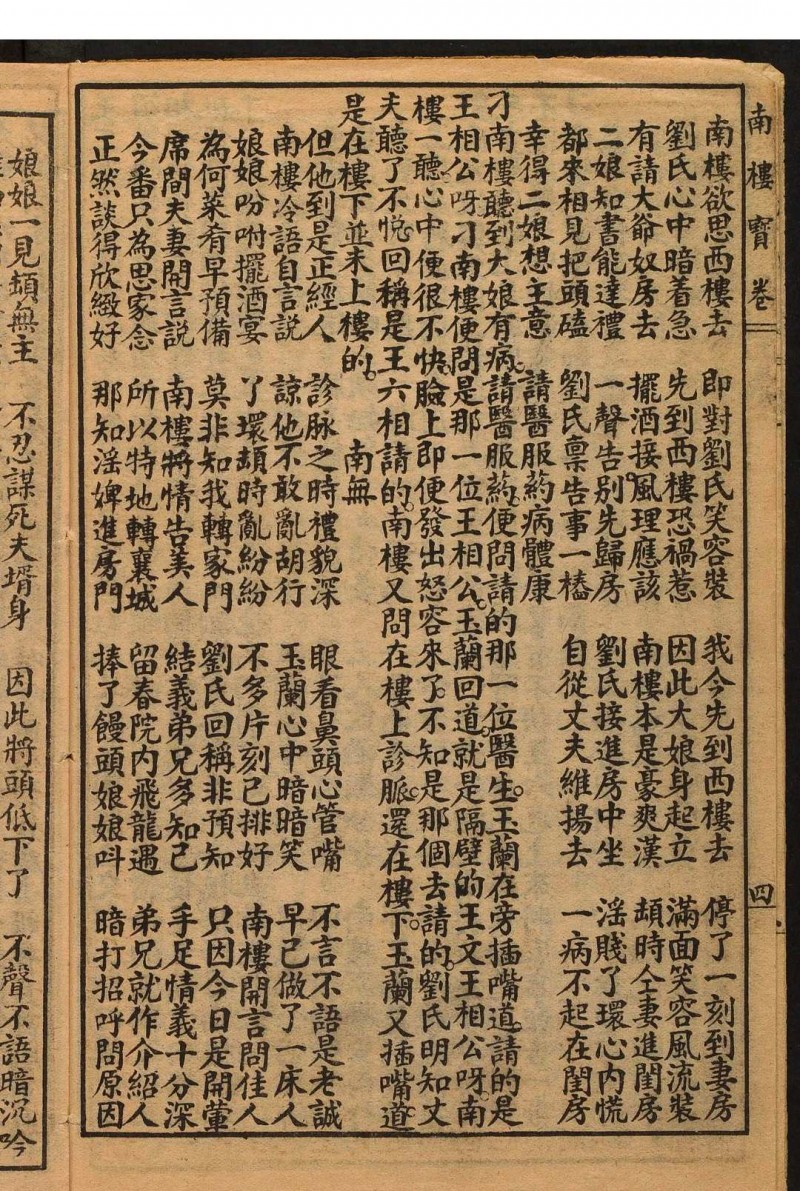 南樓寶卷 四
南樓欲思西樓去 即對劉氏笑容裝 我今先到西樓去 停了一刻到妻房
劉氏心中暗着急 先到西樓恐禍惹 因此大娘身起立 滿面笑容風流裝
有請大爺奴房去 擺酒接風理應該 南樓本是豪爽漢 頡時仝妻進閨房
二娘知書能達禮 一聲告别先歸房 劉氏接進房中坐 淫賤了環心內慌
都來相見把頭磕 劉氏禀告事一樁 自從丈夫維揚去 一病不起在閨房
幸得二娘想主意 請醫服葯病體康
刁南樓聽到大娘有病。請醫服葯。便問請的那一位醫生。玉蘭在旁插嘴道。請的是
王相公呀。刁南樓便問是那一位王相公。玉蘭回道。就是隔壁的王文王相公呀。南
樓一聽心中便很不快。臉上即便發出怒容來了。不知是那個去請的。劉氏明知丈
夫聽了不悅。回稱是王六相請的。南樓又問在樓上診脈。還在樓下。玉蘭又插嘴道。
是在樓下並未上樓的。 南無
但他到是正經人 診脉之時禮貌深 眼看鼻頭心管嘴 不言不語是老誠
南樓冷語自言說 諒他不敢亂胡行 玉蘭心中暗暗笑 早已做了一床人
娘娘吩咐擺酒宴 了環頡時亂紛紛 不多片刻已排好 南樓開言問佳人
為何菜肴早預備 莫非知我轉家門 劉氏回稱非預知 只因今日是開葷
席間夫妻開言說 南樓將情告美人 結義弟兄多知己 手足情義十分深
今番只為思家念 所以特地轉襄城 留春院內飛龍遇 弟兄就作介紹人
正然談得欣緻好 那知淫婢進房門 捧了饅頭娘娘呌 暗打招呼問原因
娘娘一見頡無主 不忍謀死夫壻身 因此將頭低下了 不聲不語暗沉吟